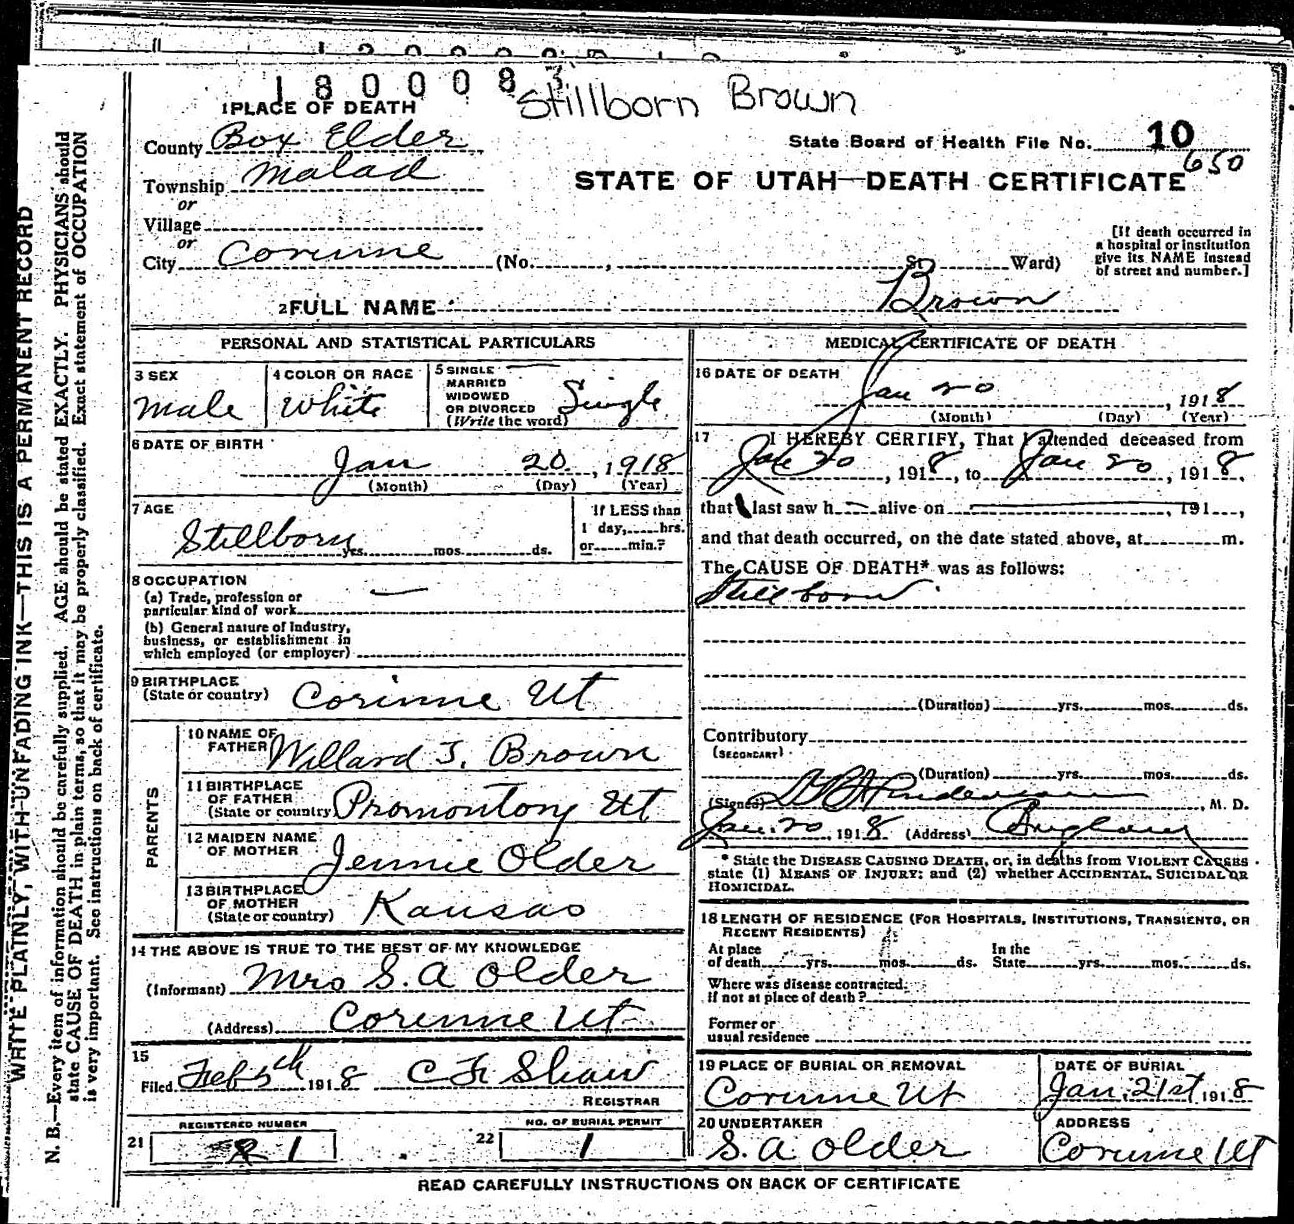 1800083
Stillborn Brown
1 PLACE OF DEATH
County Box Elder
State Board of Health File No. 10
650
Township Malad
STATE OF UTAH—DEATH CERTIFICATE
or
Village
or
City Corinne (No. , St. Ward)
[If death occurred in
a hospital or institution
give its NAME instead
of street and number.]
2 FULL NAME Brown
PERSONAL AND STATISTICAL PARTICULARS
3 SEX
Male
4 COLOR OR RACE
White
5 SINGLE
MARRIED
WIDOWED
OR DIVORCED
(Write the word)
Single
6 DATE OF BIRTH
Jan 20, 1918
(Month) (Day) (Year)
7 AGE
Stillborn yrs. mos. ds.
If LESS than
1 day, hrs.
or min.?
8 OCCUPATION
(a) Trade, profession or
particular kind of work
(b) General nature of industry,
business, or establishment in
which employed (or employer)
9 BIRTHPLACE
(State or country) Corinne Ut
PARENTS
10 NAME OF
FATHER Willard J. Brown
11 BIRTHPLACE
OF FATHER
(State or country) Promontory Ut
12 MAIDEN NAME
OF MOTHER Jennie Older
13 BIRTHPLACE
OF MOTHER
(State or country) Kansas
14 THE ABOVE IS TRUE TO THE BEST OF MY KNOWLEDGE
(Informant) Mrs S. A Older
(Address) Corinne Ut
15
Filed Feb 5th 1918 C F Shaw
REGISTRAR
REGISTERED NUMBER
21 1
NO. OF BURIAL PERMIT
22 1
MEDICAL CERTIFICATE OF DEATH
16 DATE OF DEATH
Jan 20, 1918
(Month) (Day) (Year)
17 I HEREBY CERTIFY, That I attended deceased from
Jan 20, 1918, to Jan 20, 1918,
that I last saw h alive on , 191 ,
and that death occurred, on the date stated above, at m.
The CAUSE OF DEATH* was as follows:
Stillborn
(Duration) yrs. mos. ds.
Contributory
(SECONDARY)
(Duration) yrs. mos. ds.
(Signed) , M. D.
Jan. 20, 1918 (Address)
* State the DISEASE CAUSING DEATH, or, in deaths from VIOLENT CAUSES
state (1) MEANS OF INJURY; and (2) whether ACCIDENTAL, SUICIDAL OR
HOMICIDAL.
18 LENGTH OF RESIDENCE (FOR HOSPITALS, INSTITUTIONS, TRANSIENTS, OR
RECENT RESIDENTS)
At place
of death yrs. mos. ds.
In the
State yrs. mos. ds.
Where was disease contracted,
if not at place of death?
Former or
usual residence
19 PLACE OF BURIAL OR REMOVAL
Corinne Ut
DATE OF BURIAL
Jan. 21st 1918
20 UNDERTAKER
S. A Older
ADDRESS
Corinne Ut
READ CAREFULLY INSTRUCTIONS ON BACK OF CERTIFICATE
WRITE PLAINLY, WITH UNFADING INK—THIS IS A PERMANENT RECORD
N. B.—Every item of information should be carefully supplied. AGE should be stated EXACTLY. PHYSICIANS should
state CAUSE OF DEATH in plain terms, so that it may be properly classified. Exact statement of OCCUPATION
is very important. See instructions on back of certificate.